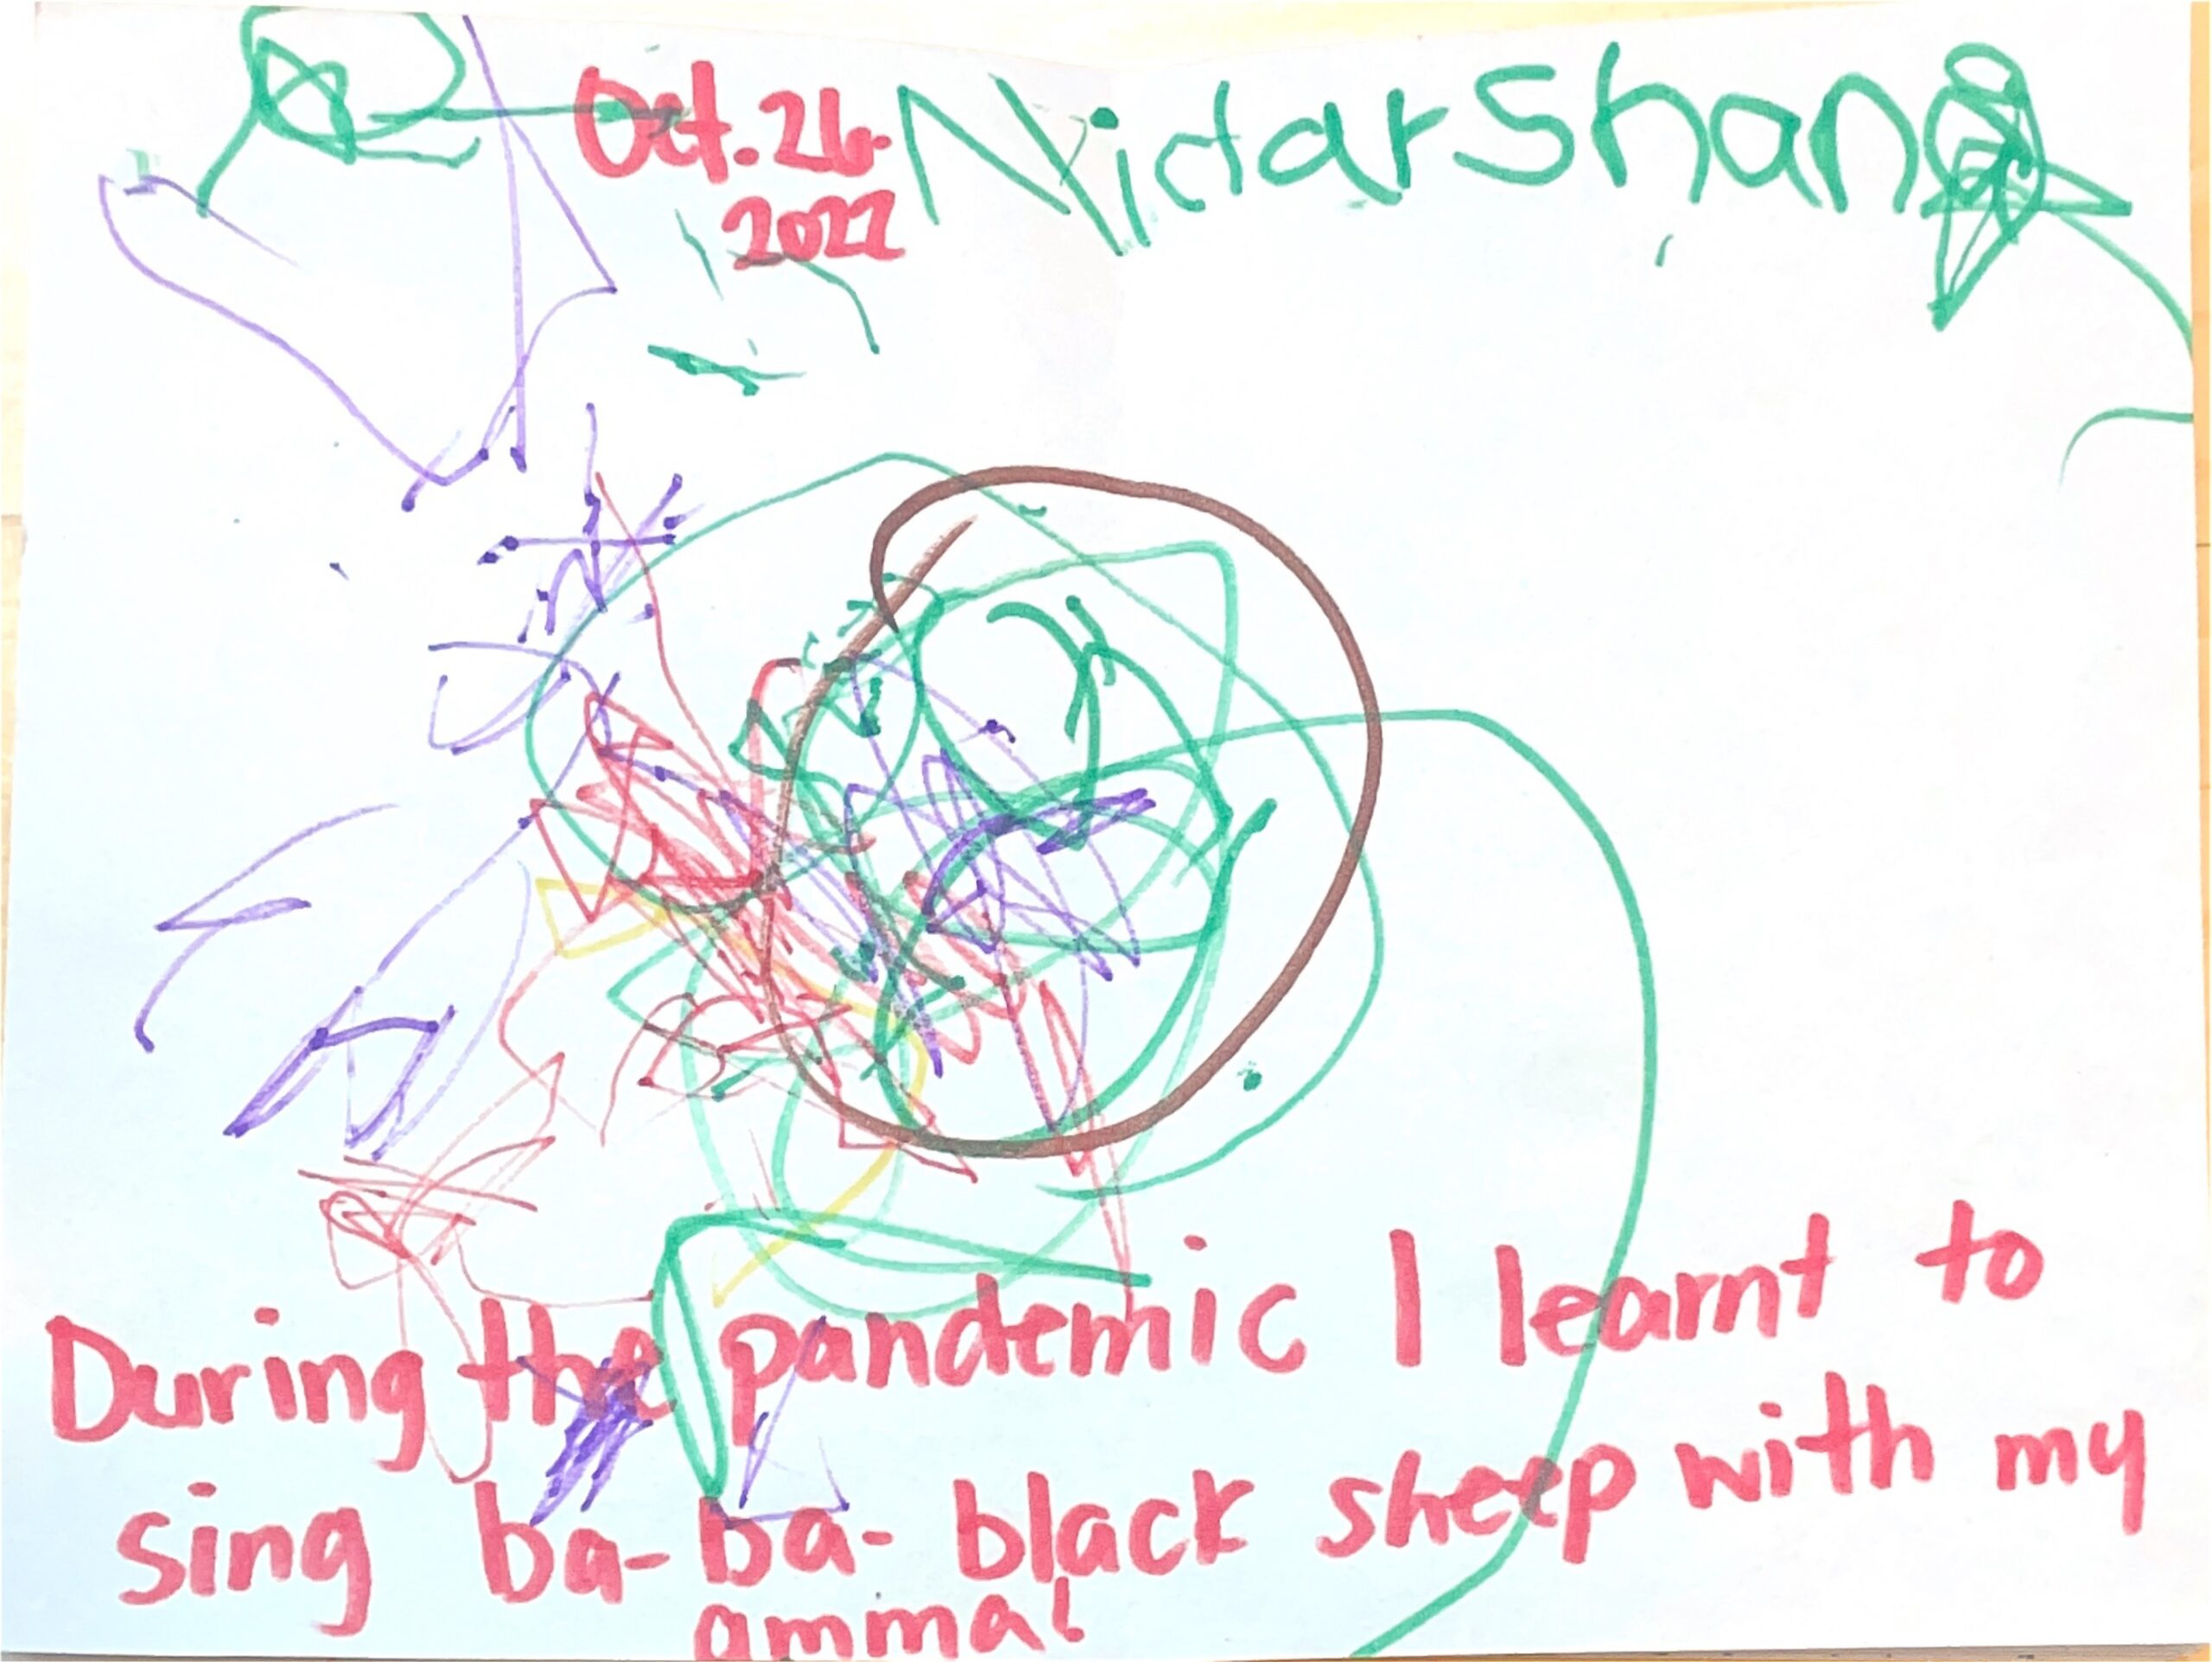 Oct. 26. Nidarshana
2022
During the pandemic I learnt to
sing ba-ba-black sheep with my
amma!